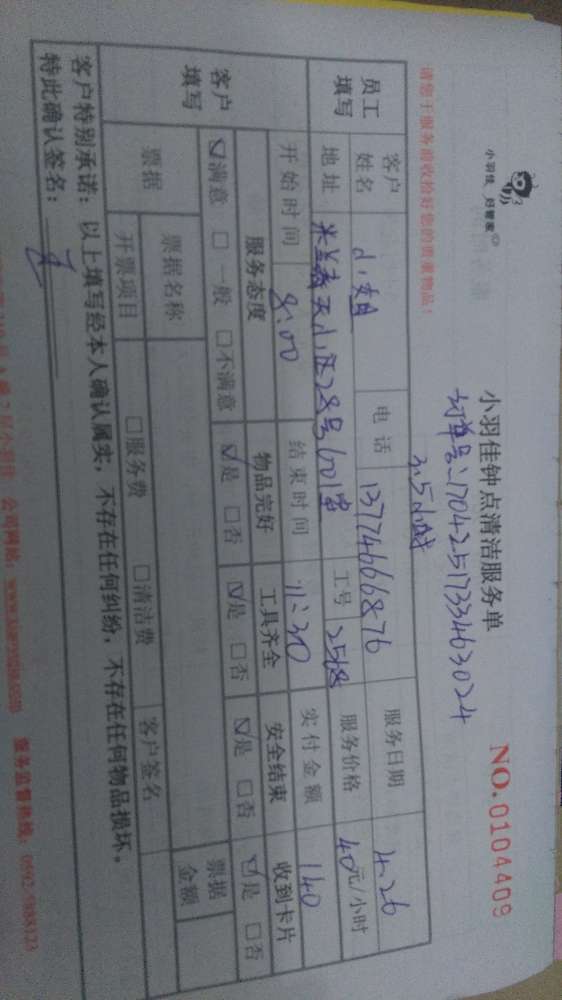 小羽佳 好管家
小羽佳钟点清洁服务单
NO.0104409
订单号:170425173346 3024
请您于服务前收拾好您的贵重物品!
3.5小时
员工填写
客户姓名 电话 13774666876 服务日期 4.26
地址 天小区28号601室 工号 258 服务价格 40元/小时
客户填写
开始时间 8:00 结束时间 11:30 实付金额 140
服务态度 物品完好 工具齐全 安全结束 收到卡片
☑满意 □一般 □不满意 ☑是 □否 ☑是 □否 ☑是 □否 ☑是 □否
票据 票据名称 票据金额
开票项目 □服务费 □清洁费 客户签名
客户特别承诺:以上填写经本人确认属实,不存在任何纠纷,不存在任何物品损坏。
特此确认签名:
公司网址: 服务监督热线:0592-5888123